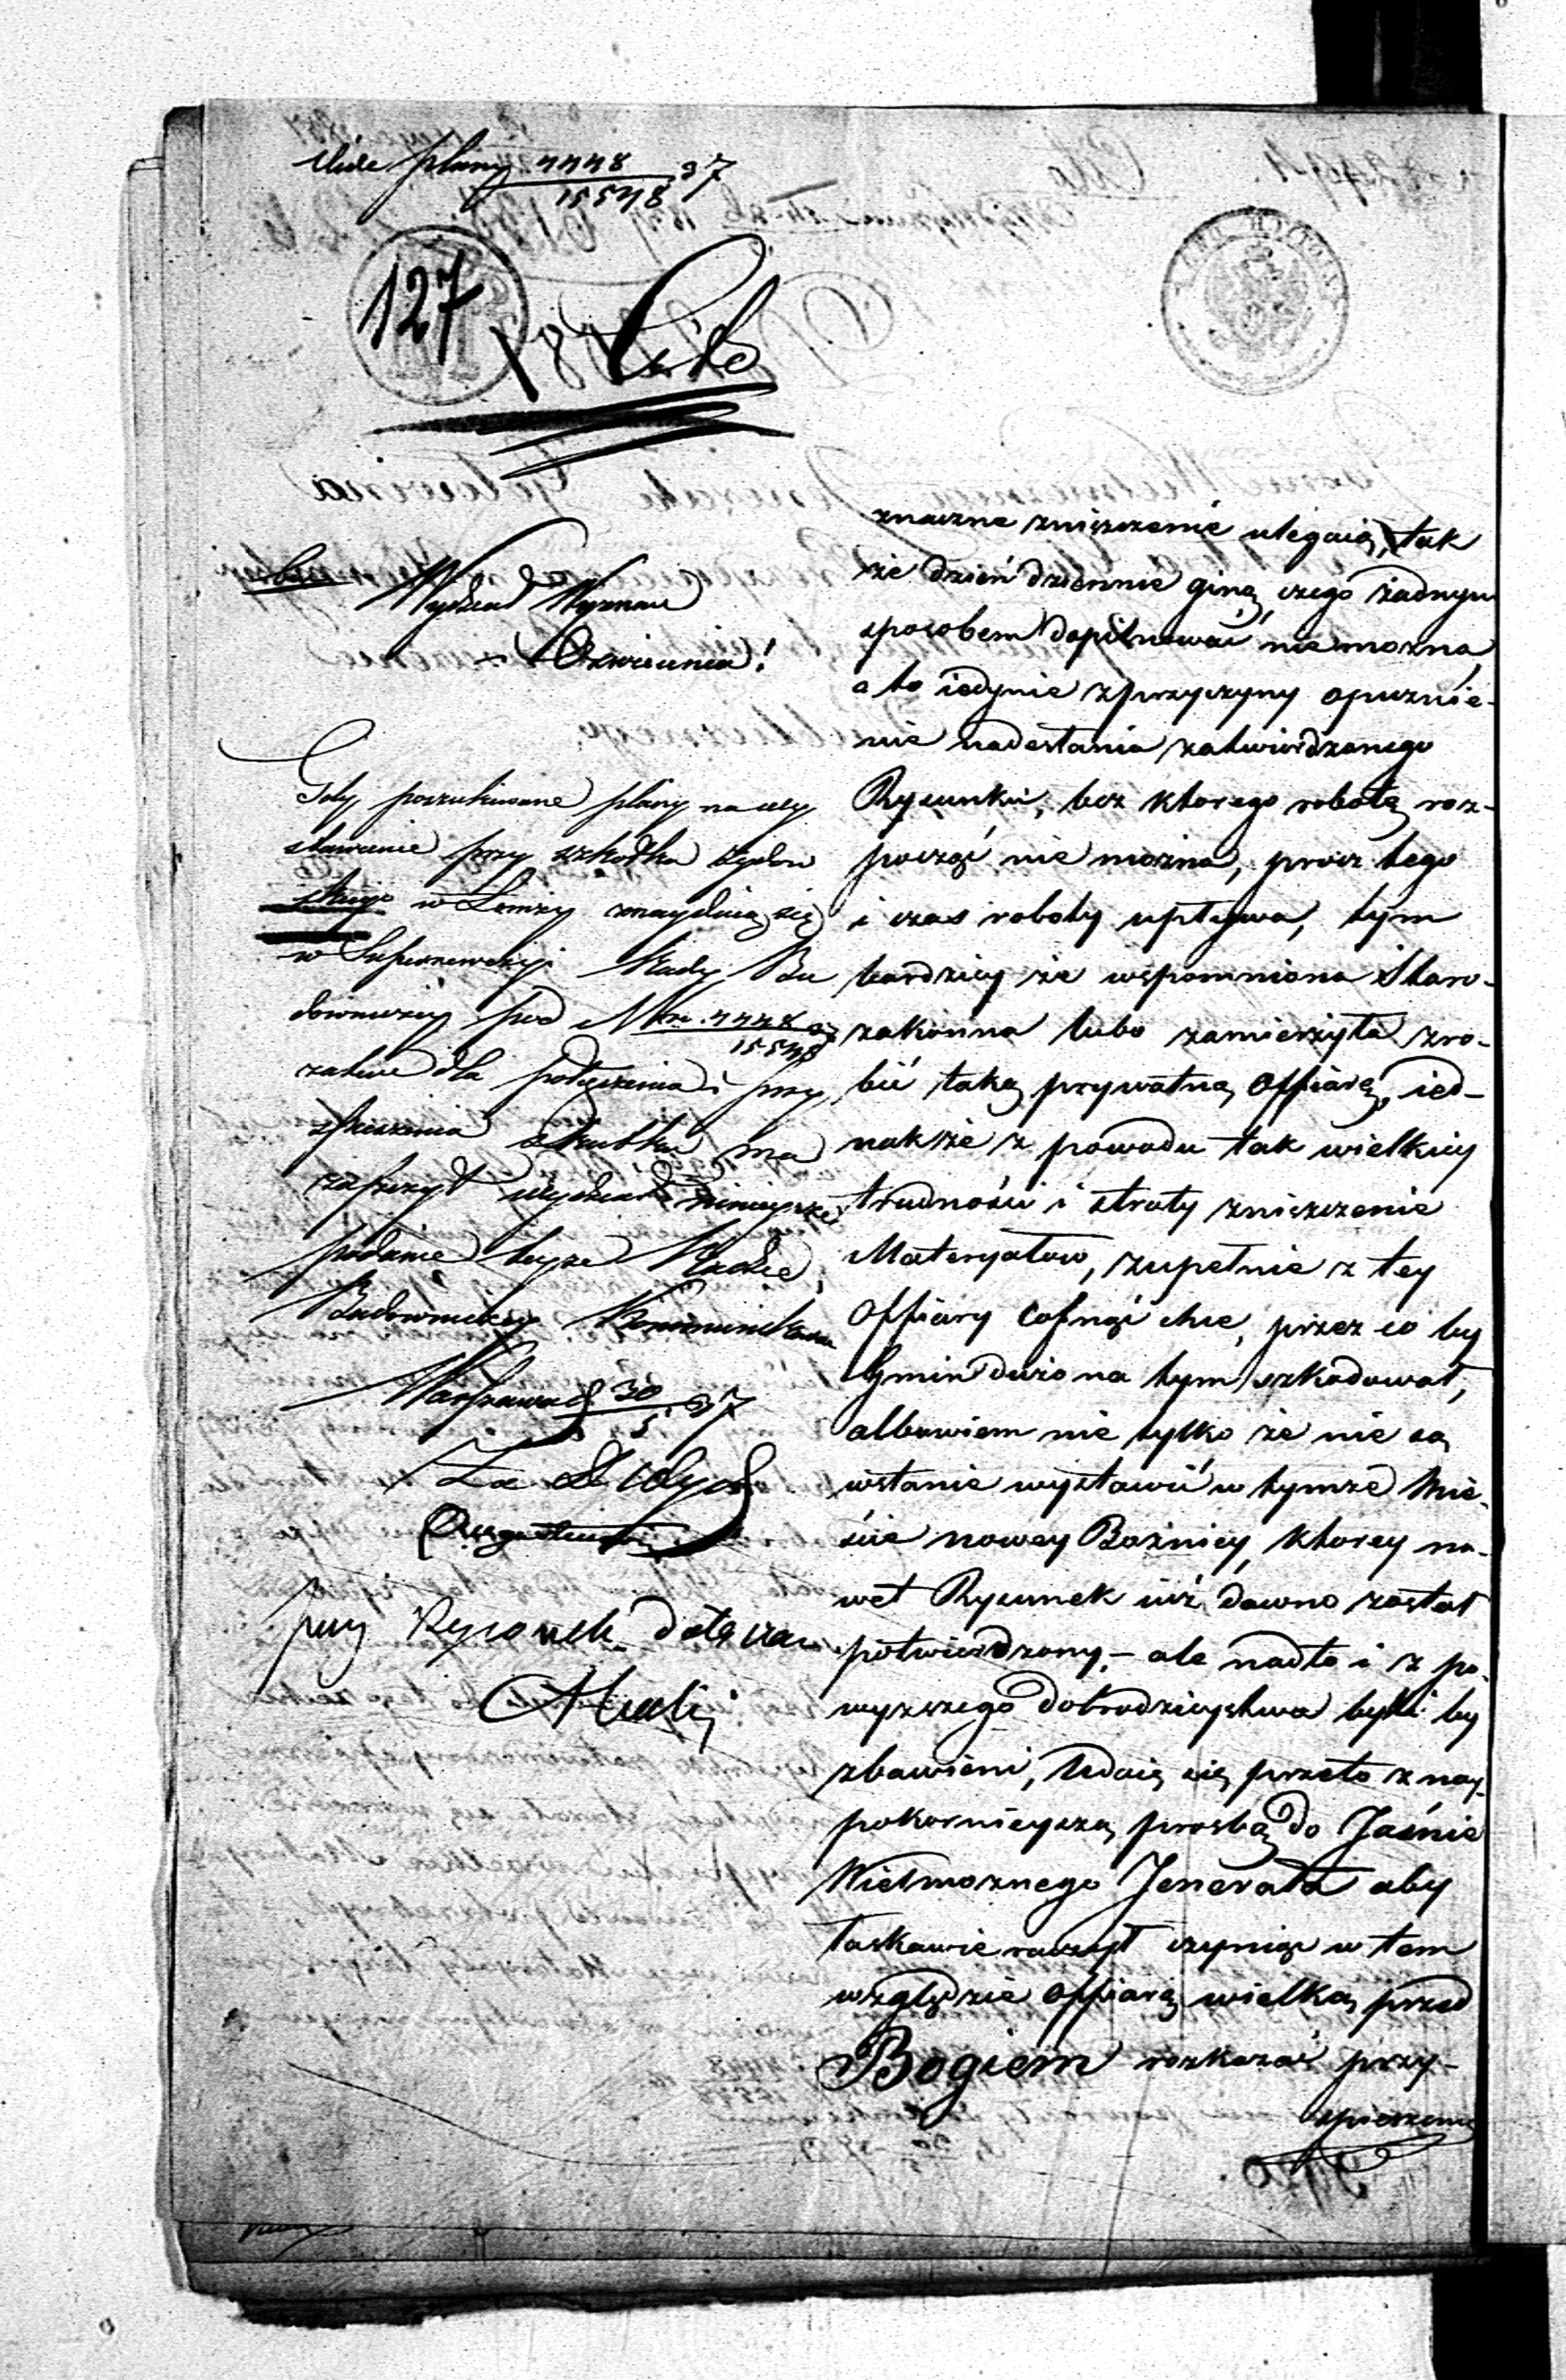 plany 4448/15548 37
127
Cito
Wydział Wyznań
i Oświecenia!
Gdy poszukiwane plany na
stawienie przy szkółka żydow
skiego w Łomży znayduią się
w Rady Bu
downiczey pod Nr. 4448/15548 37
zatem dla połączenia i przy
spieszenia skutku ma
zaszczyt Wydział ninieysze
podanie teyże Radzie
Budowniczey
Warszawa d. 30/5 37
Za
przy Rysunek dołącza
znaczne zniszczenie ulegaią, tak
że dzień dziennie giną, czego żadnym
sposobem dopilnować nie można,
a to iedynie z przyczyny opuznie-
nie nadesłania zatwierdzonego
Rysunku, bez ktorego robotę roz-
począć nie można, prócz tego
i czas roboty upływa, tym
bardziey że wspomniona Staro-
zakonna lubo zamierzyła zro-
bić taką prywatną offiarę, ied-
nakże z powodu tak wielkiey
trudności i straty zniszczenie
Materyałow, zupełnie z tey
Offiary cofnąć chce, przez co by
Gmin dużo na tym szkodował,
albowiem nie tylko że nie są
wstanie wystawić w tymże Mie-
ście nowey Bożnicy, ktorey na-
wet Rysunek iuż dawno został
potwierdzony,- ale nadto i z po-
wyższego dobrodzieystwa byli by
zbawieni, udaię się przeto z nay-
pokornieyszą prosbą do Jaśnie
Wielmożnego Jenerała aby
łaskawie raczył czyniąc w tem
względzie offiarę wielką przed
Bogiem rozkazać przy-
spieszenie